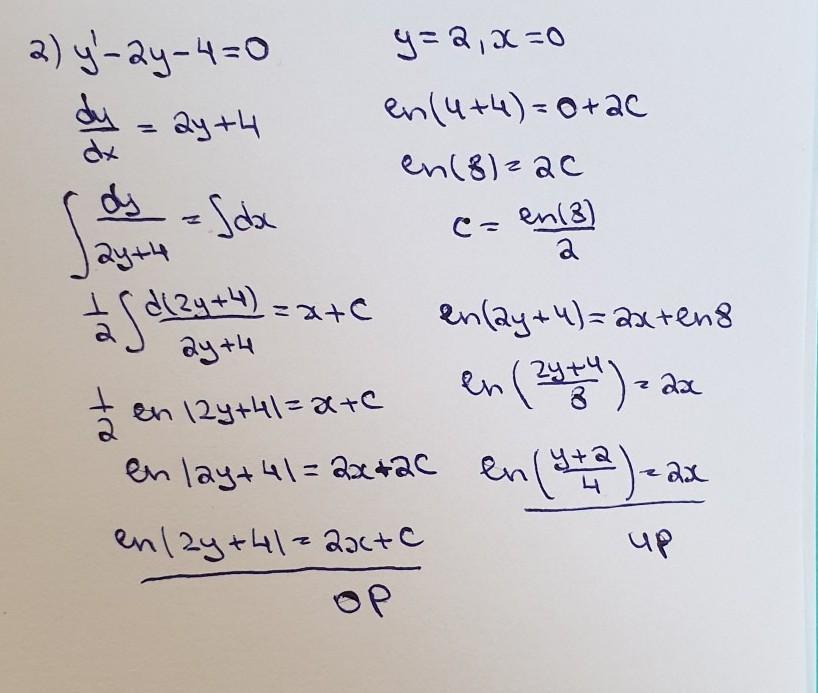 2) y' - 2y - 4 = 0
dy/dx = 2y + 4
∫ dy/(2y+4) = ∫ dx
1/2 ∫ d(2y+4)/(2y+4) = x + C
1/2 ln |2y+4| = x + C
ln |2y+4| = 2x + 2C
ln |2y+4| = 2x + C
OP
y = 2, x = 0
ln(4+4) = 0 + 2C
ln(8) = 2C
C = ln(8)/2
ln(2y+4) = 2x + ln8
ln((2y+4)/8) = 2x
ln((y+2)/4) = 2x
UP